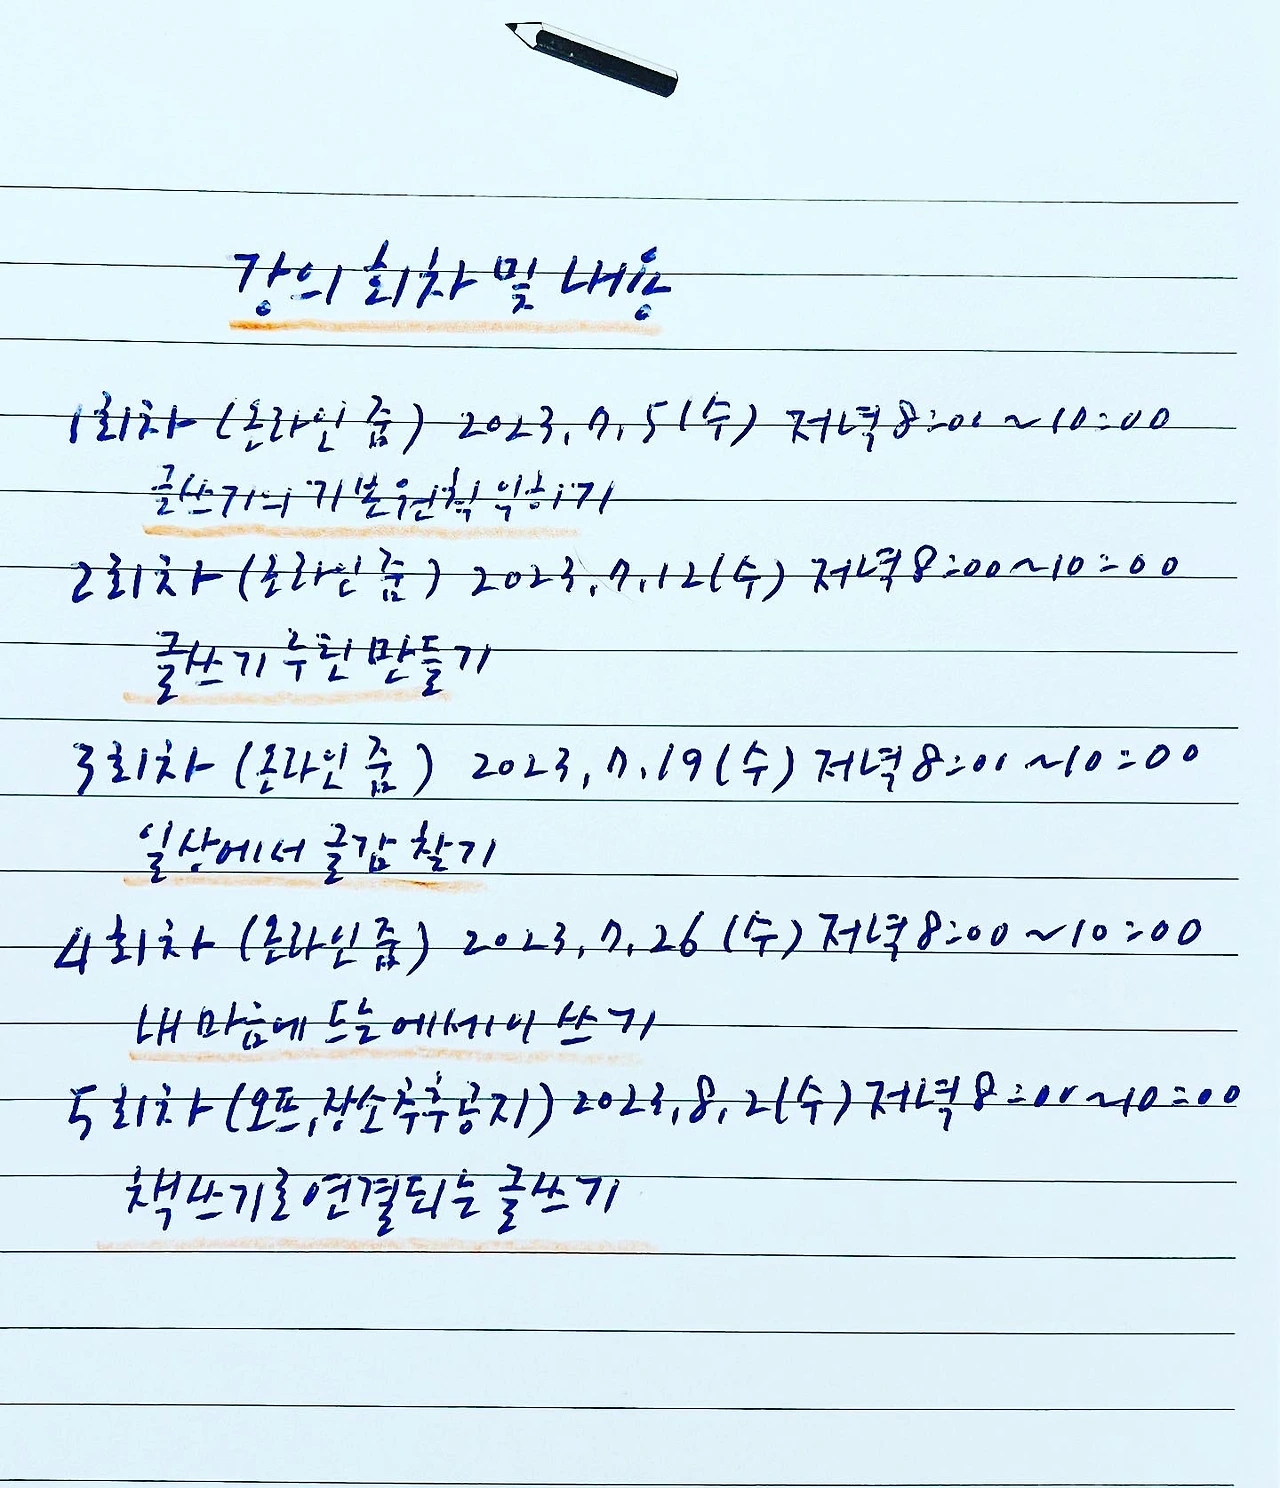 강의 회차 및 내용
1회차 (온라인 줌) 2023. 7. 5 (수) 저녁 8:00 ~ 10:00
글쓰기의 기본원칙 익히기
2회차 (온라인 줌) 2023. 7. 12 (수) 저녁 8:00 ~ 10:00
글쓰기 루틴 만들기
3회차 (온라인 줌) 2023. 7. 19 (수) 저녁 8:00 ~ 10:00
일상에서 글감 찾기
4회차 (온라인 줌) 2023. 7. 26 (수) 저녁 8:00 ~ 10:00
내 마음에 드는 에세이 쓰기
5회차 (오프, 장소추후공지) 2023. 8. 2 (수) 저녁 8:00 ~ 10:00
책쓰기로 연결되는 글쓰기